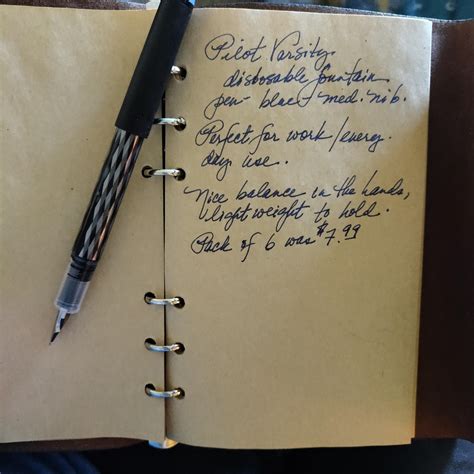 Pilot Varsity
disposable fountain
pen - blue - med. nib.
Perfect for work/every
day use.
Nice balance in the hands,
light weight to hold.
Pack of 6 was $7.99